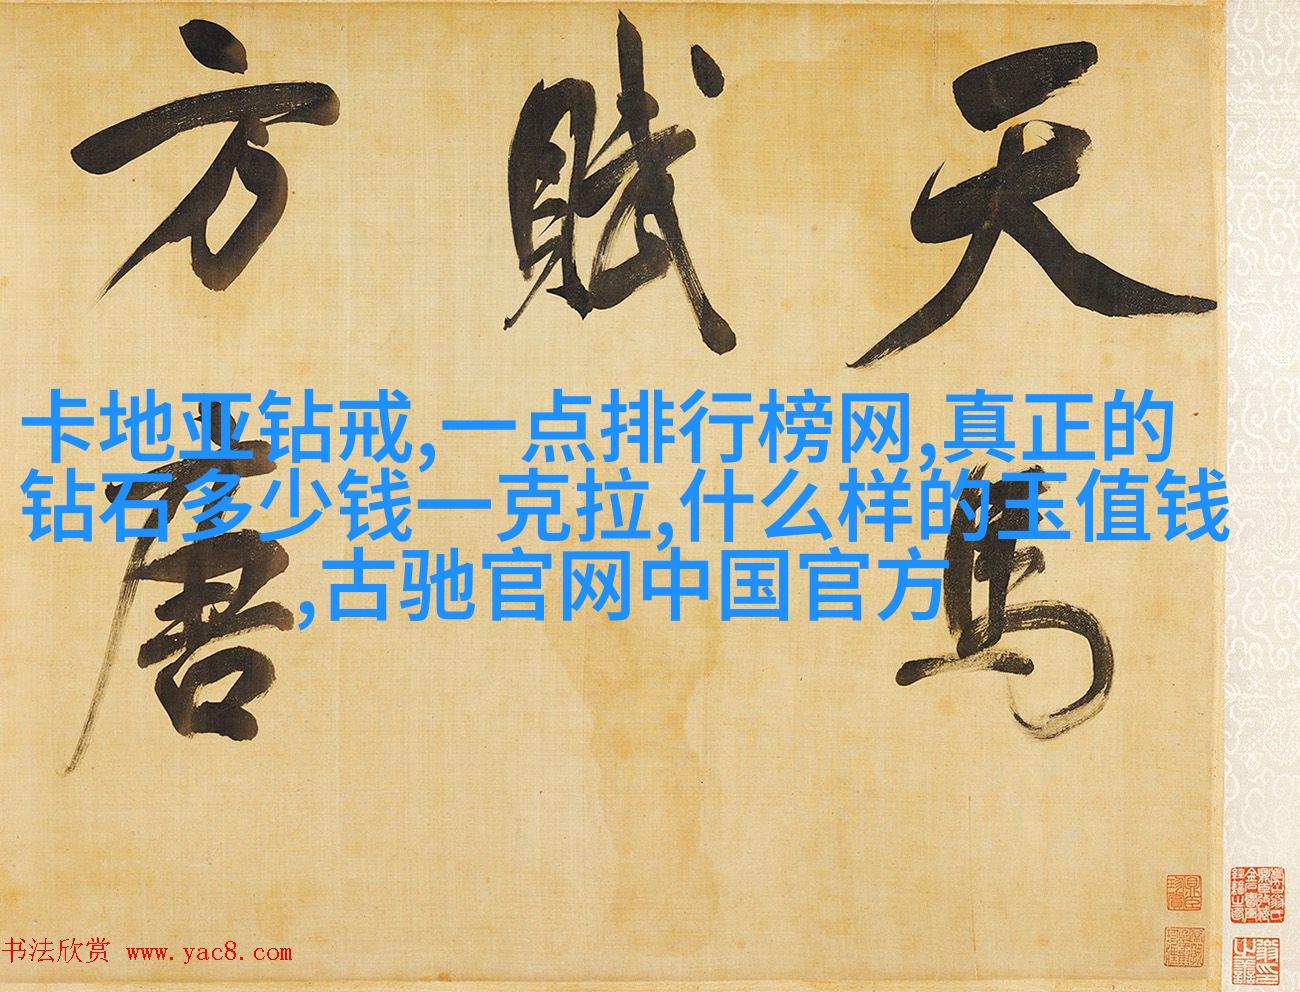 天馬
賦
方唐
卡地亚钻戒,一点排行榜网,真正的
钻石多少钱一克拉,什么样的玉值钱
,古驰官网中国官方
书法欣赏 www.yac8.com